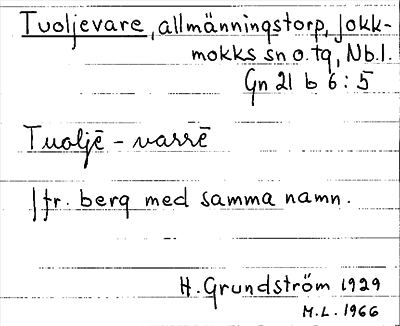 Tuoljevare, allmänningstorp, Jokk-
mokks sn o. tg, Nb.l.
Gn 21 b 6:5
Tuoljē - varrē
| fr. berg med samma namn.
H. Grundström 1929
M.L. 1966